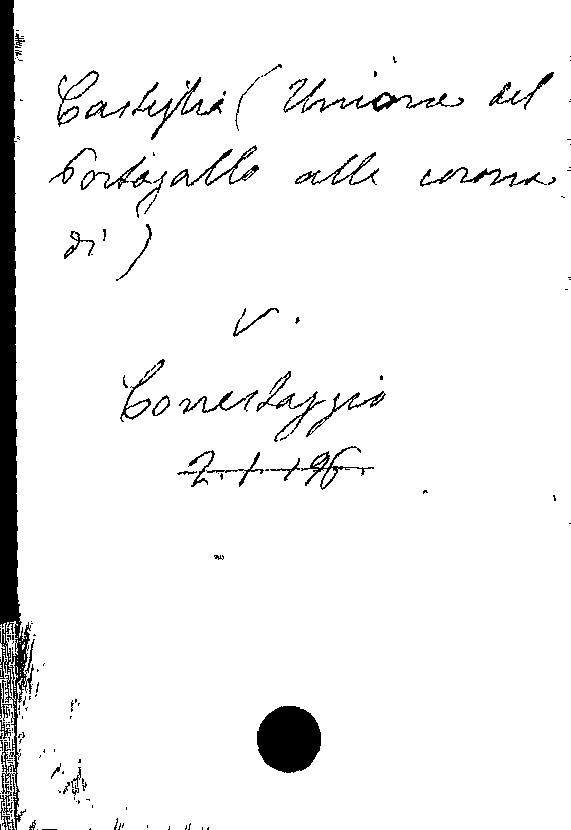 Castiglia (Unione del
Portogallo alla corona
di)
v.
Conestaggio
2. 1. 196.